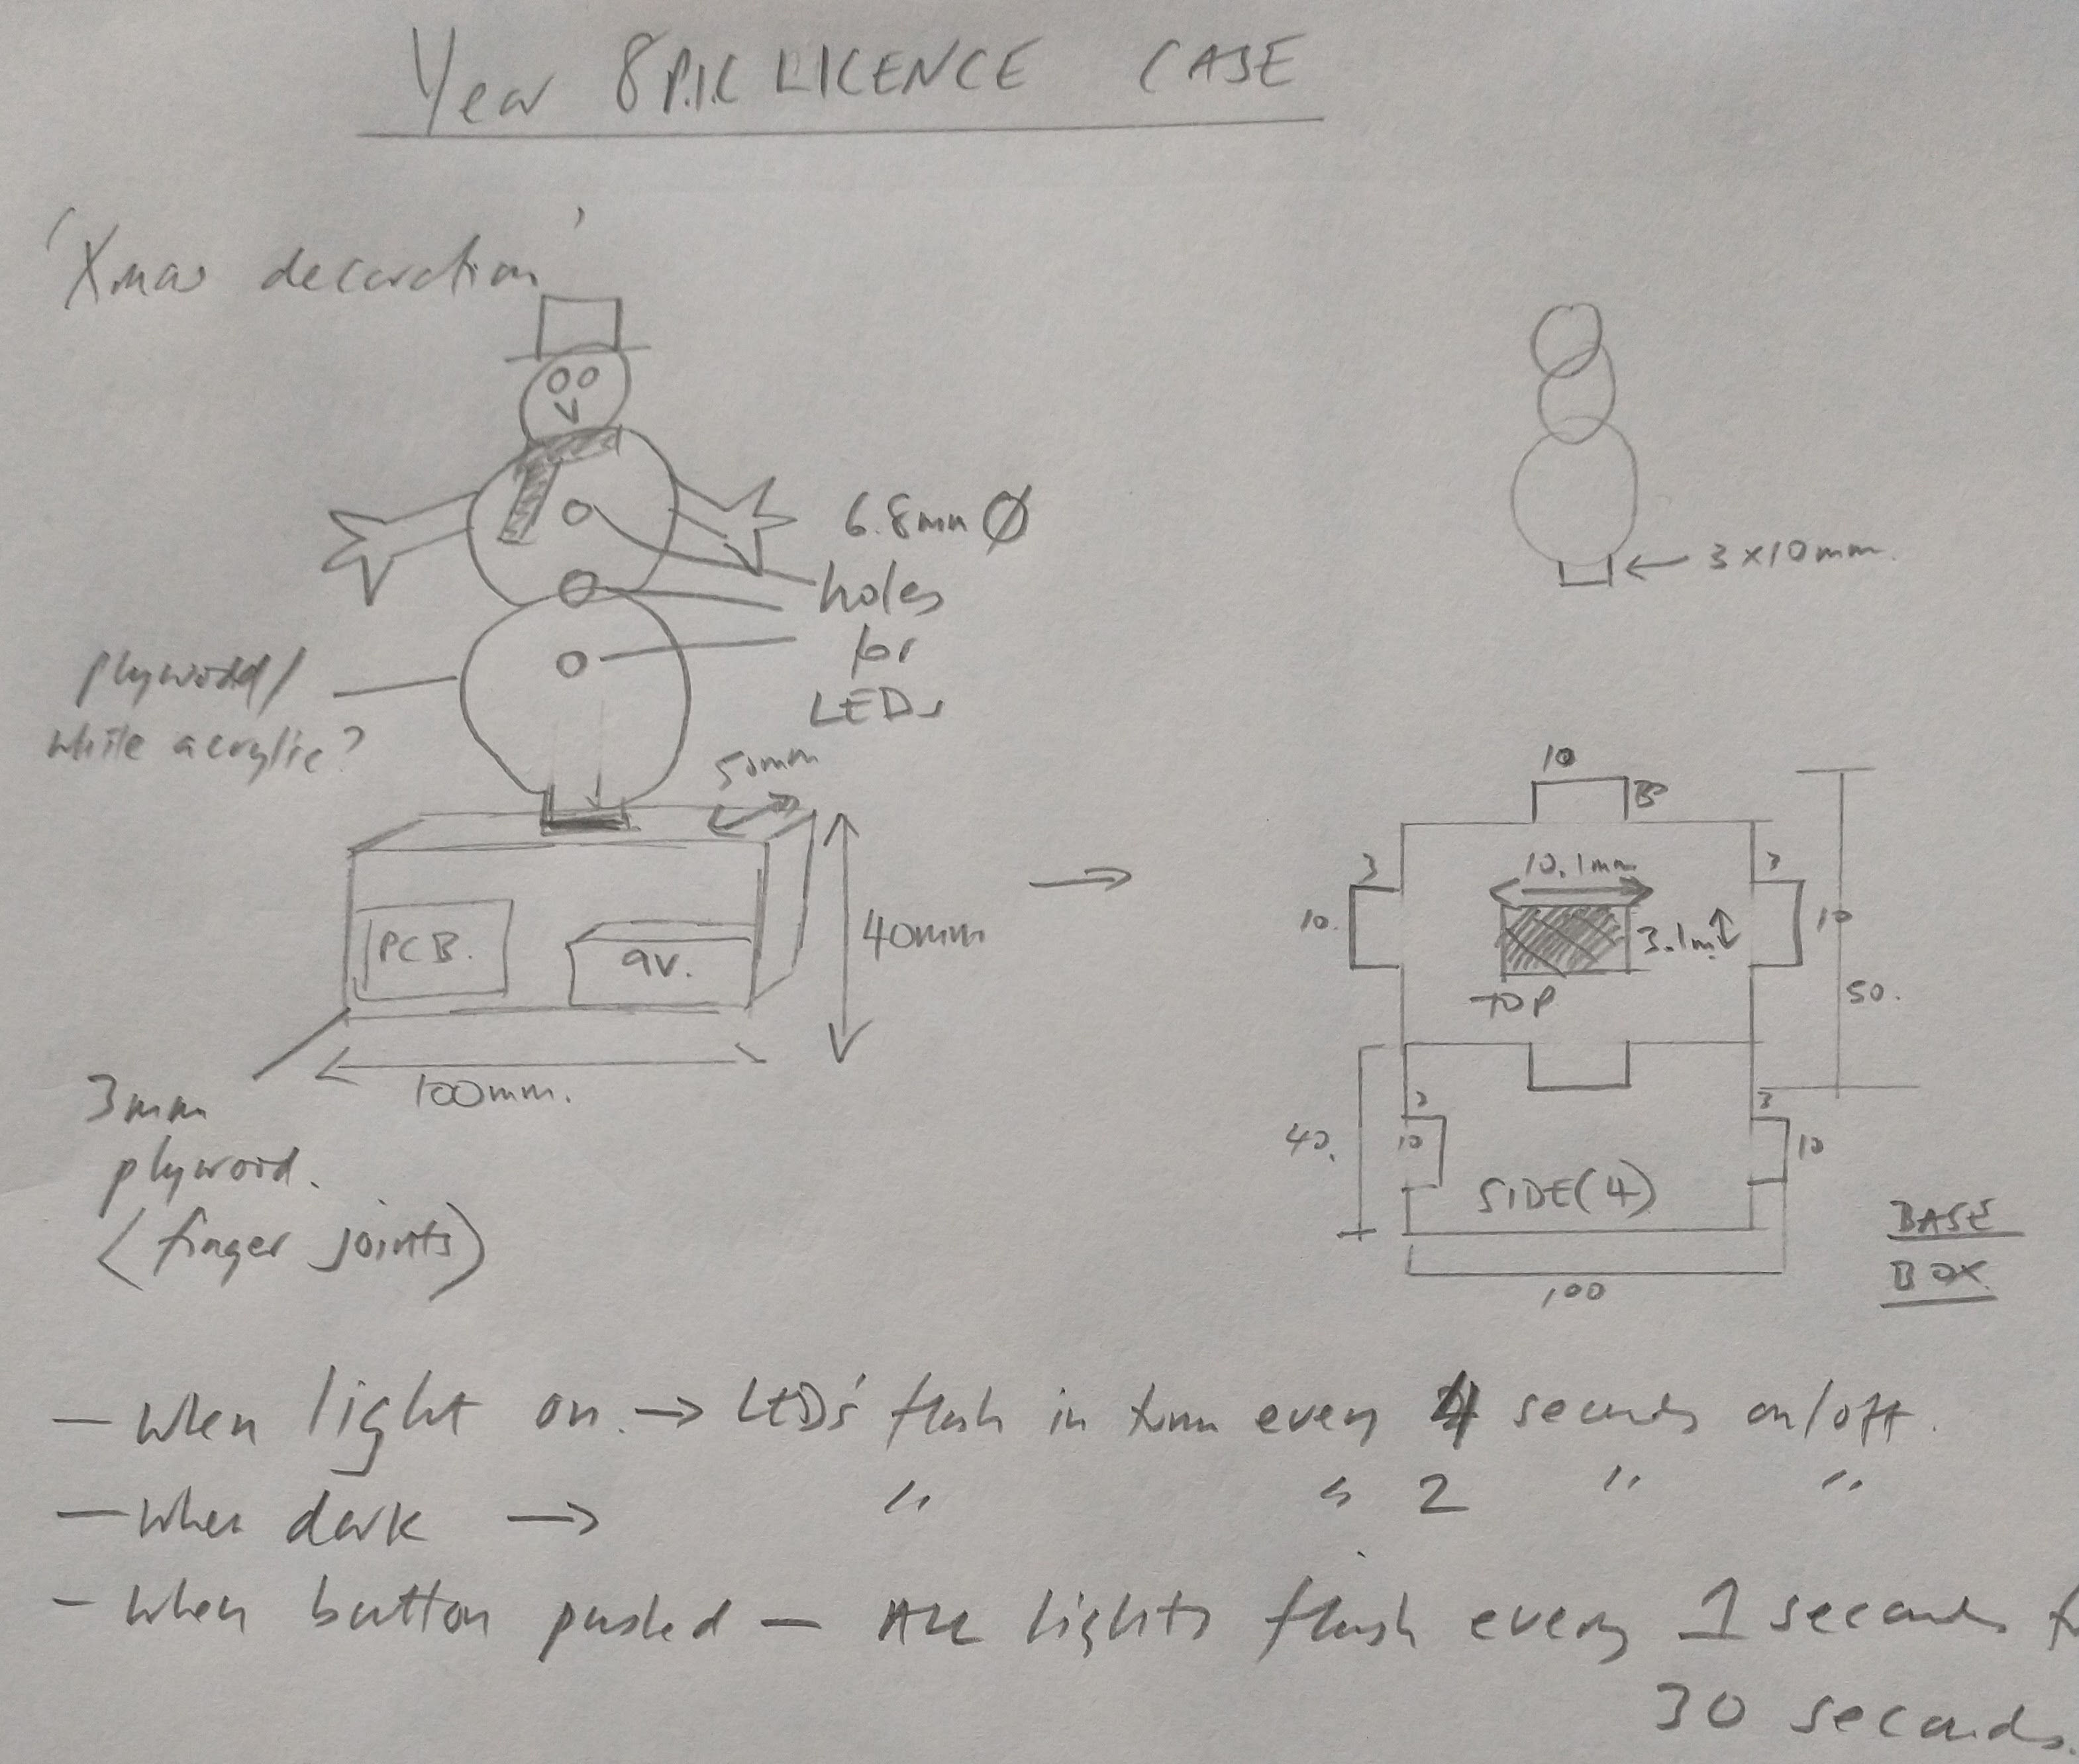 Year 8 P.I.C LICENCE CASE
'Xmas decoration'
6.8mm Ø
holes
for
LEDs
3 x 10mm.
plywood/
white acrylic?
50mm
PCB.
9V.
40mm
100mm.
3mm
plywood.
(finger joints)
10
3
3
10.1mm
3
10.
3.1m
10
TOP
50.
40.
3
10
3
10
SIDE(4)
100
BASE
BOX
- when light on. → LED's flash in turn every 4 seconds on/off.
- when dark → " " 2 " "
- when button pushed - ALL lights flash every 1 seconds
30 seconds.